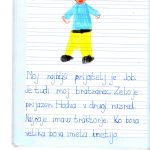 Moj najboljši prijatelj je Job.
Je tudi moj bratranec. Zelo je
prijazen. Hodiva v drugi razred.
Najraje imava traktorje. Ko bova
velika bova imela kmetijo.